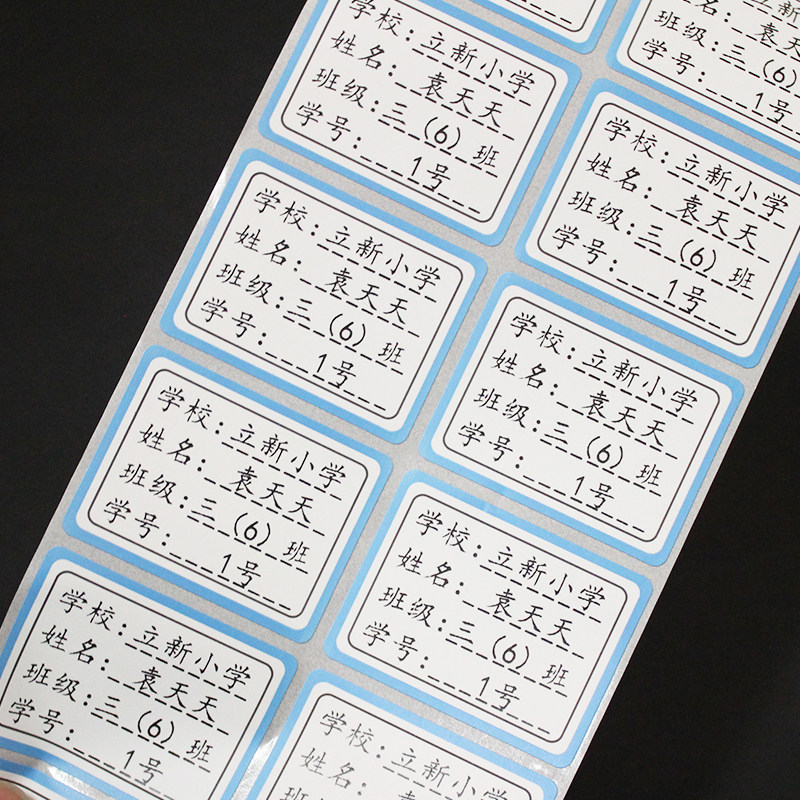 班级:三(6)班
学号: 1号
学校:立新小学
姓名: 袁天天
班级:三(6)班
学号: 1号
学校:立新小学
姓名: 袁天天
班级:三(6)班
学号: 1号
学校:立新小学
姓名: 袁天天
班级:三(6)班
学号: 1号
学校:立新小学
姓名: 袁天天
班级:三(6)班
学号: 1号
学校:立新小学
姓名: 袁天天
班级:三(6)班
学号: 1号
学校:立新小学
姓名: 袁天天
班级:三(6)班
学号: 1号
学校:立新小学
姓名: 袁天天
班级:三(6)班
学号: 1号
学校:立新小学
姓名: